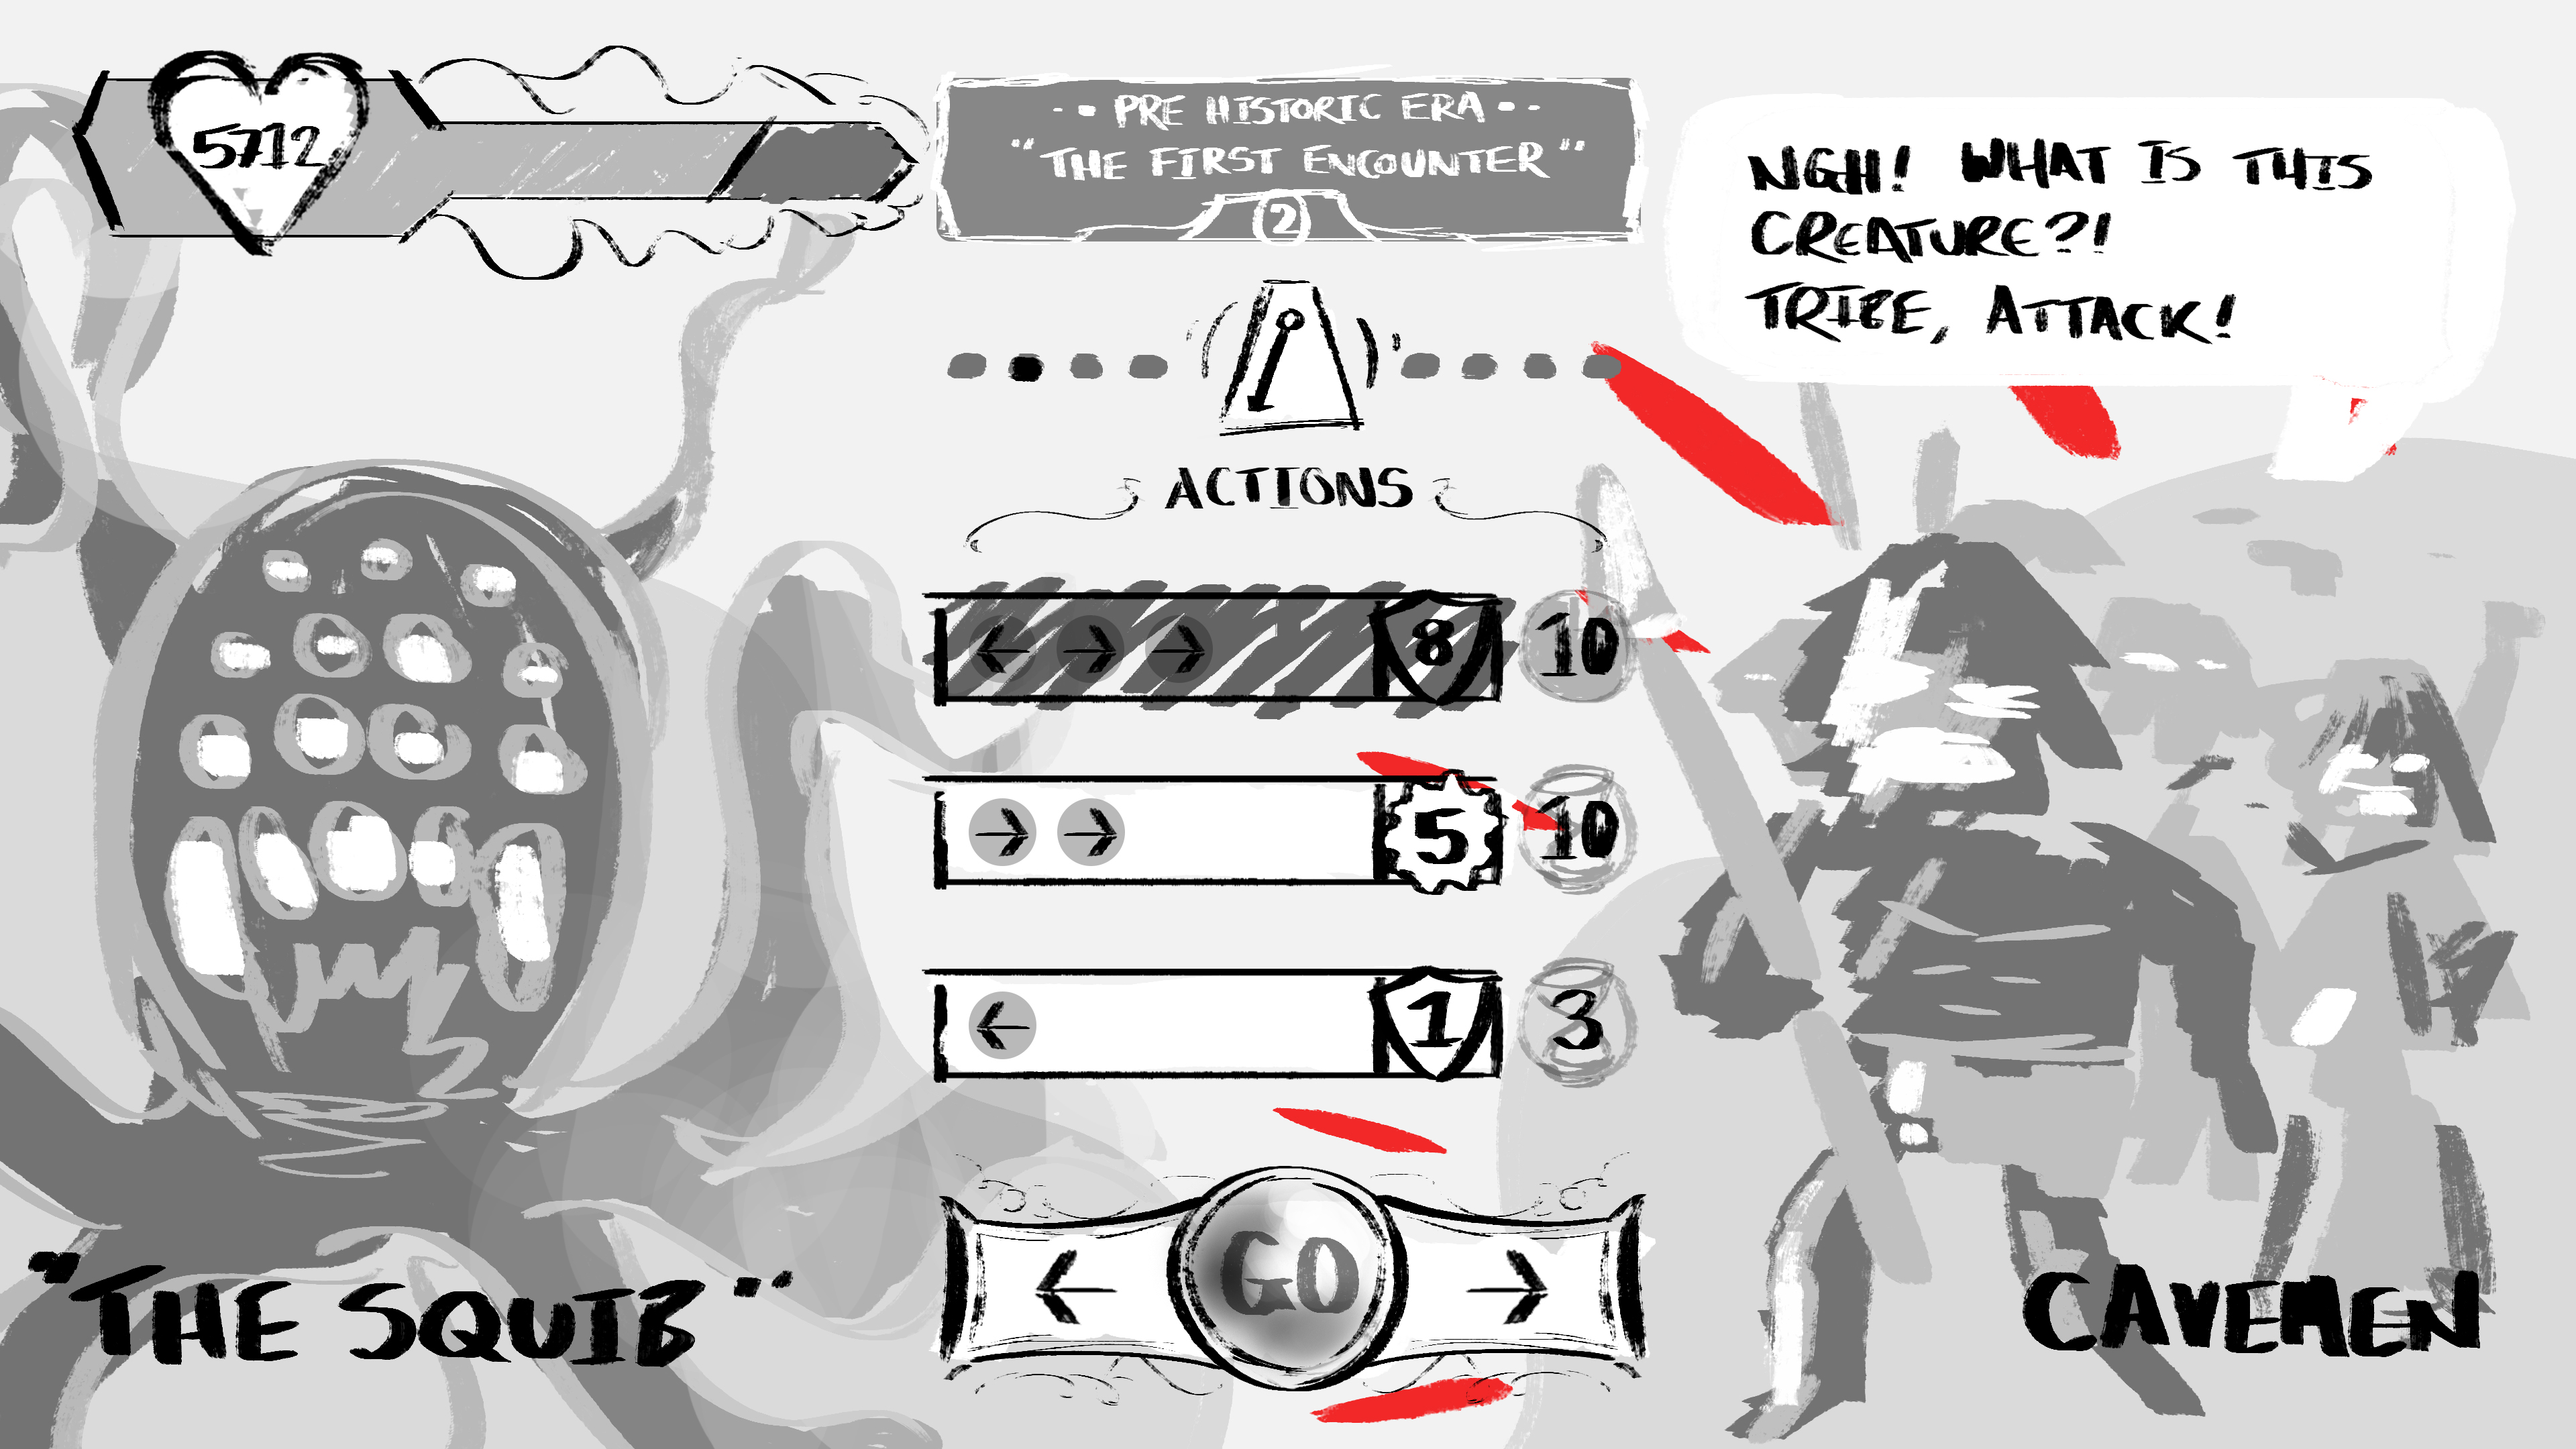 5712
·• PRE HISTORIC ERA •·
"THE FIRST ENCOUNTER"
2
NGH! WHAT IS THIS
CREATURE?!
TRIBE, ATTACK!
ACTIONS
← → → 8 10
→ → 5 10
← 1 3
← GO →
"THE SQUIB"
CAVEMEN